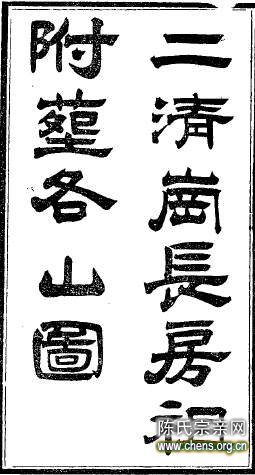 二清崗長房
附塟各山圖
陈氏宗亲网
www.chens.org.cn